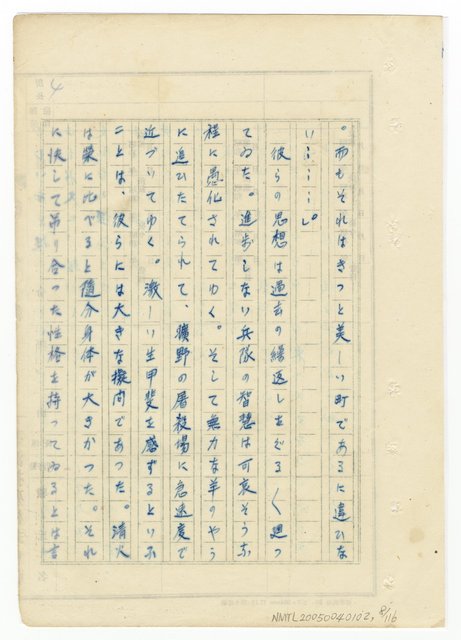 。而もそれはきつと美しい町であるに違ひな
い………」。
彼らの思想は過去の繰返しをぐる〱廻つ
てゐた。進歩しない兵隊の智慧は可哀そうな
程に愚化されてゆく。そして無力な羊のやう
に追ひたてられて、曠野の屠殺場に急速度で
近づいてゆく。激しい生甲斐を感ずるといふ
ことは、彼らには大きな擬問であつた。清火
は榮に比べると隨分身体が大きかつた。それ
に決して吊り合つた性格を持つてゐるとは言
4
NMTL20050040102, 8/116